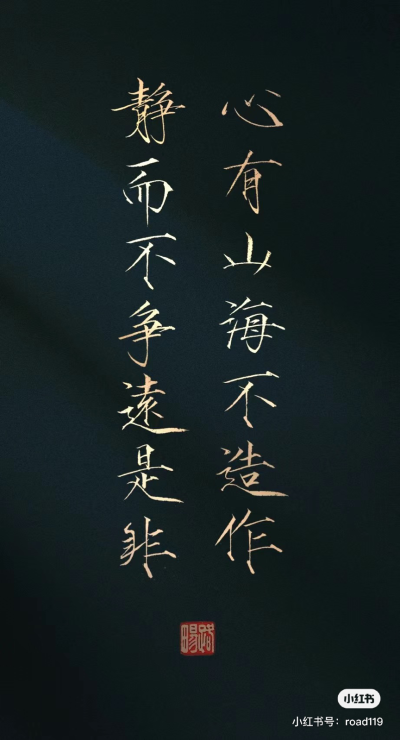 心有山海不造作
靜而不爭遠是非
小红书
小红书号：road119